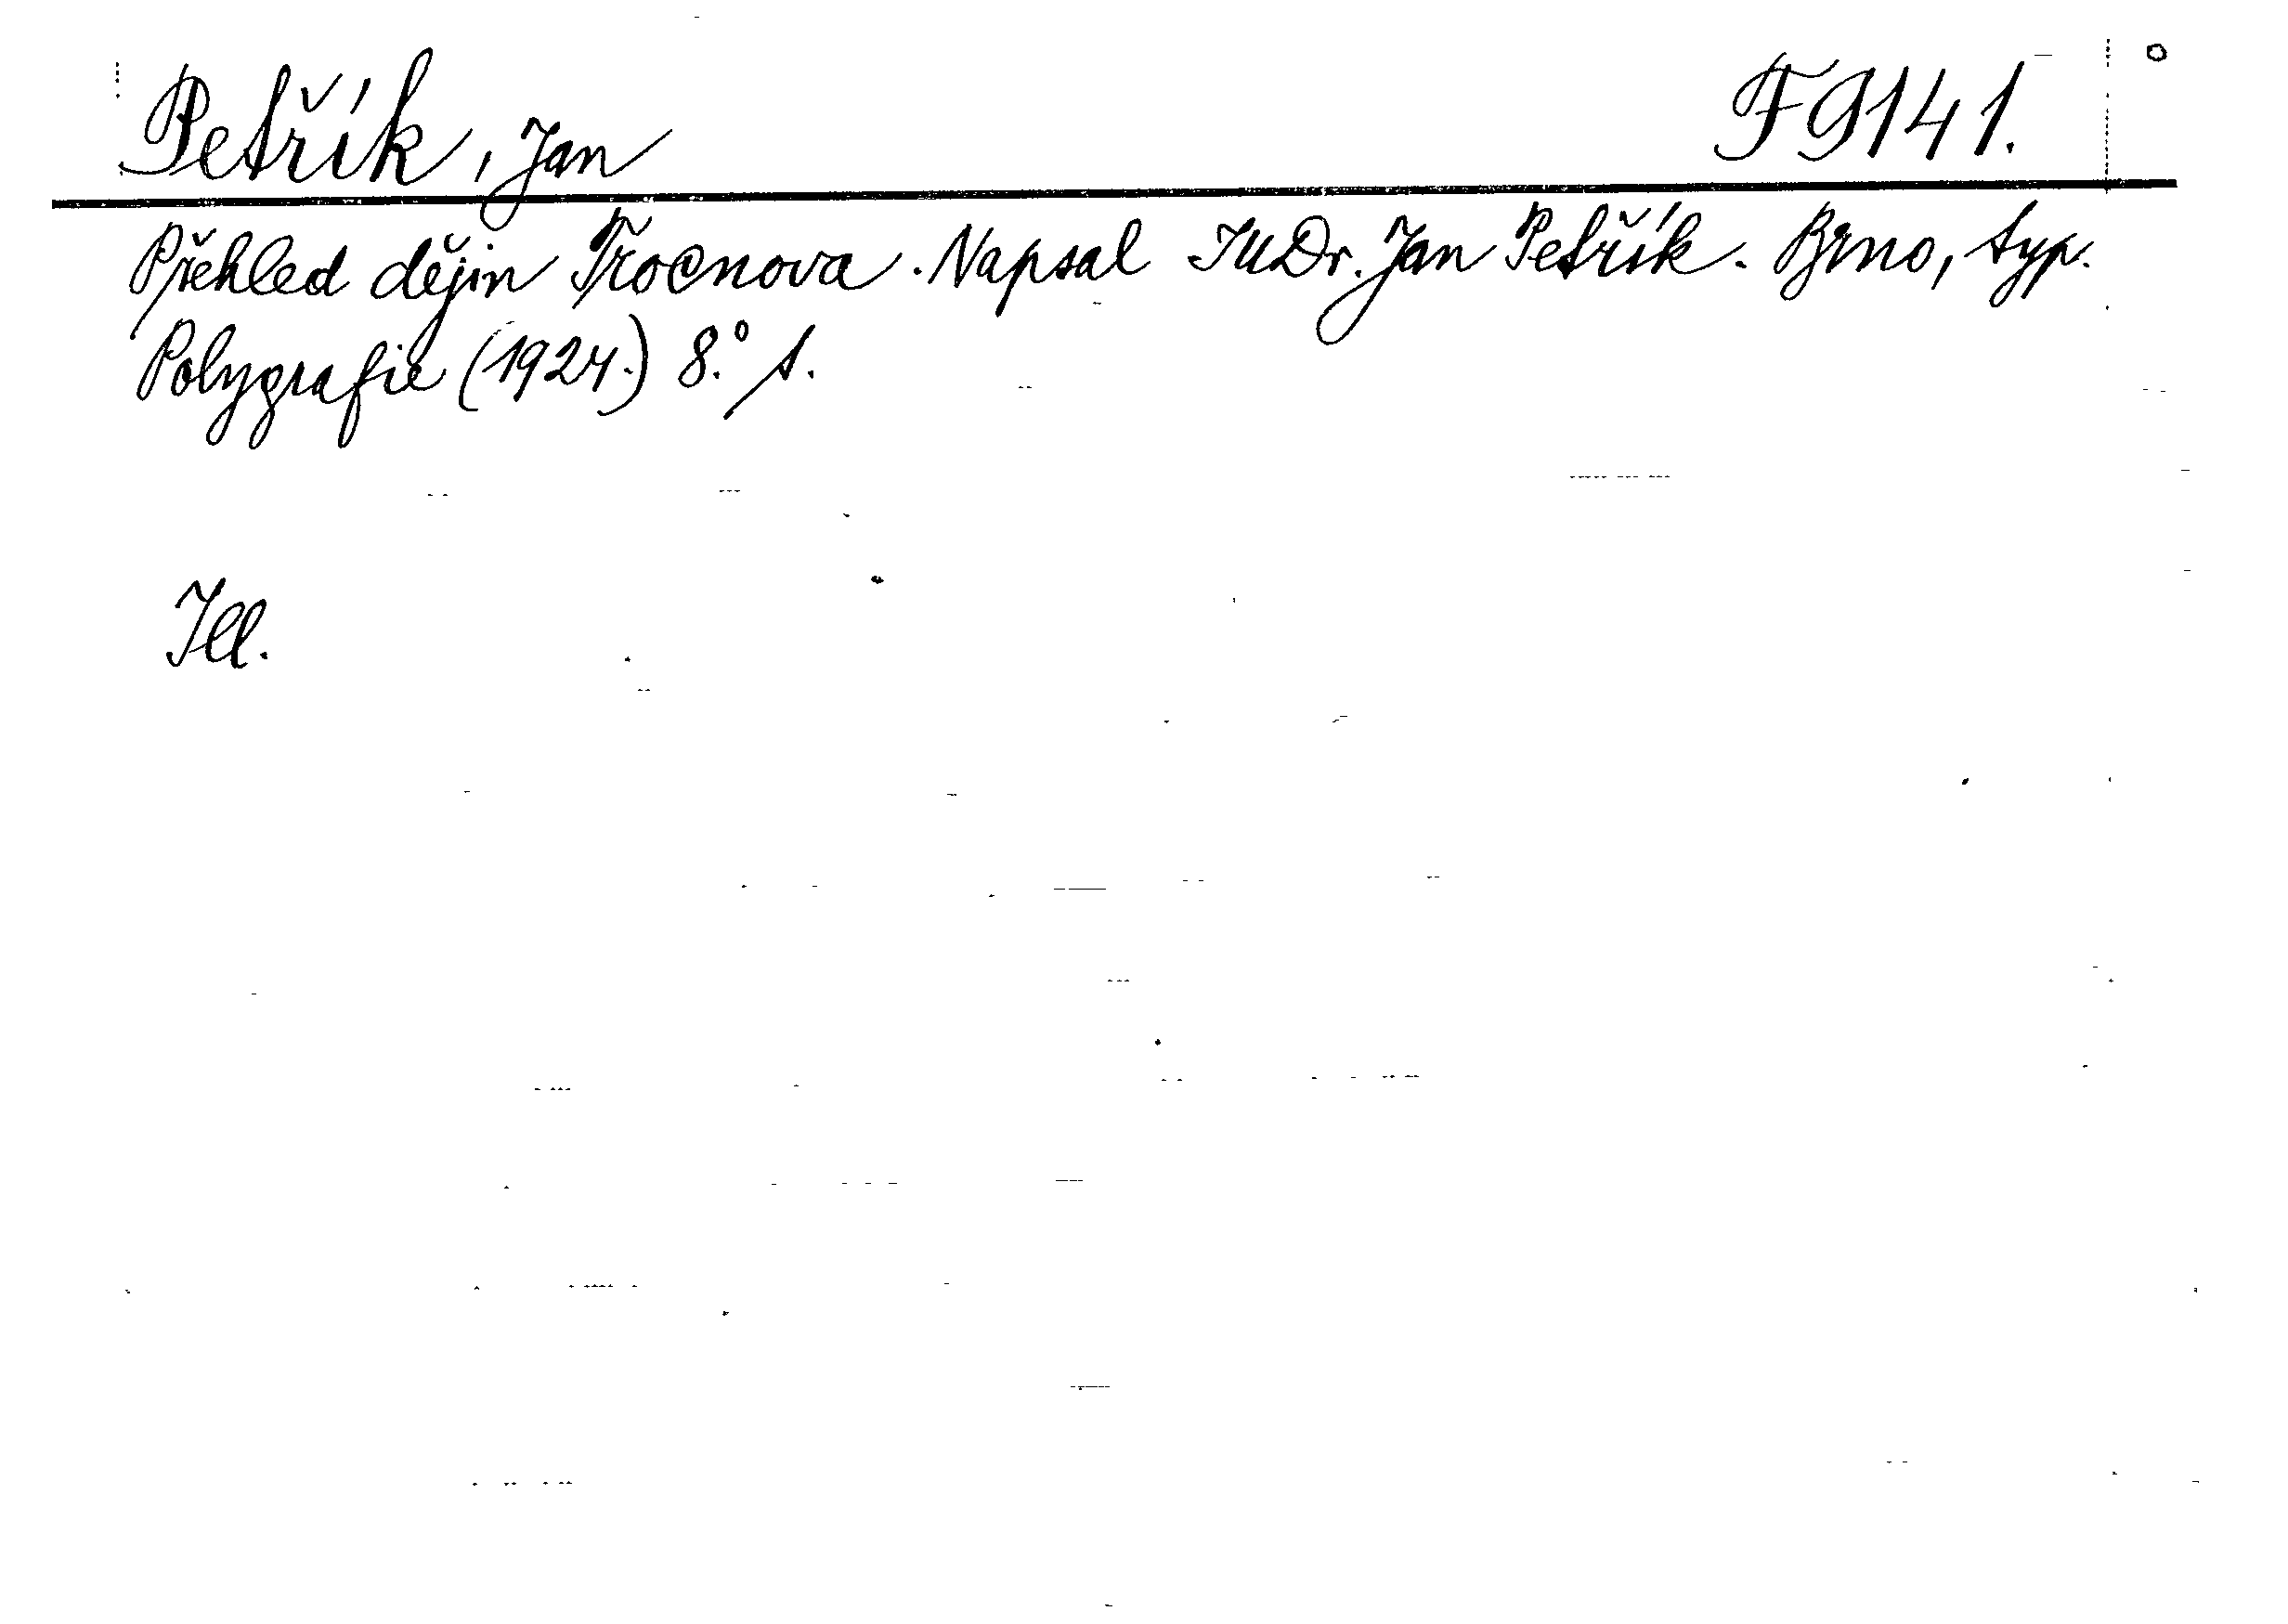 Petřík, Jan F 9141.
Přehled dějin Trocnova. Napsal JUDr. Jan Petřík. Brno, typ.
Polygrafie (1924.) 8.° s.
Ill.